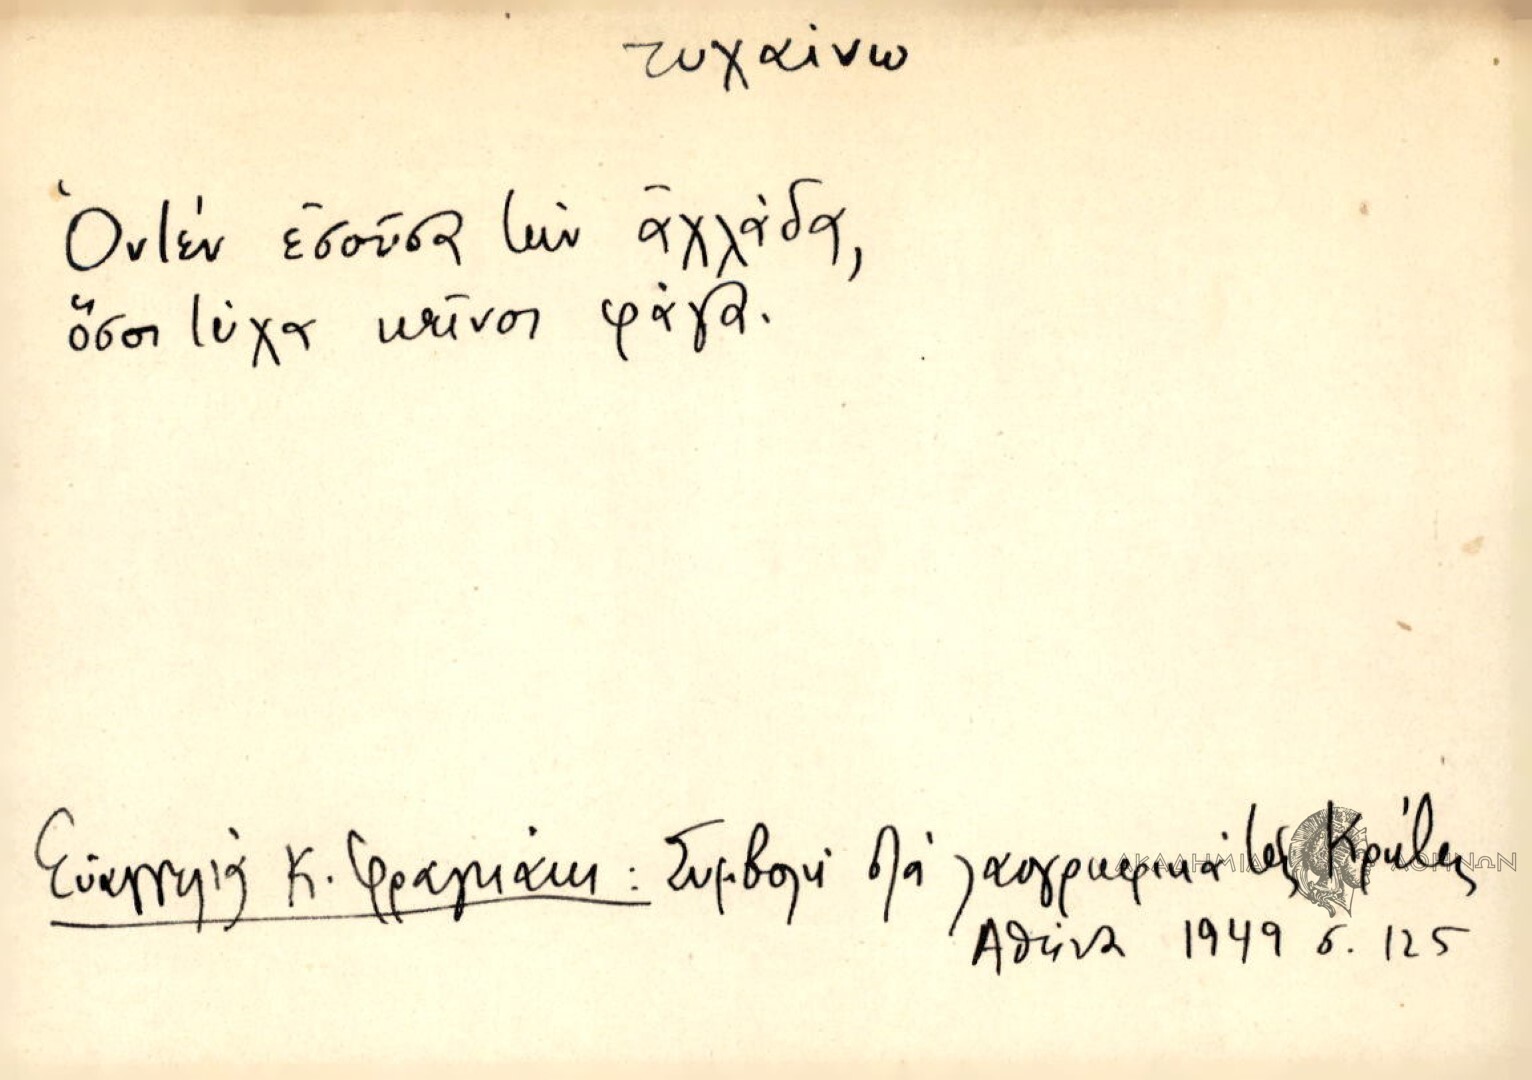 τυχαίνω
Ὁντέν ἐσοῦσα τὴν ἀχλάδα,
ὅσοι τύχα κεῖνοι φάγα.
Εὐαγγελία Κ. Φραγκάκι: Συμβολή στά λαογραφικά τῆς Κρήτης
Ἀθήνα 1949 σ. 125
ΑΚΑΔΗΜΙΑ ΑΘΗΝΩΝ